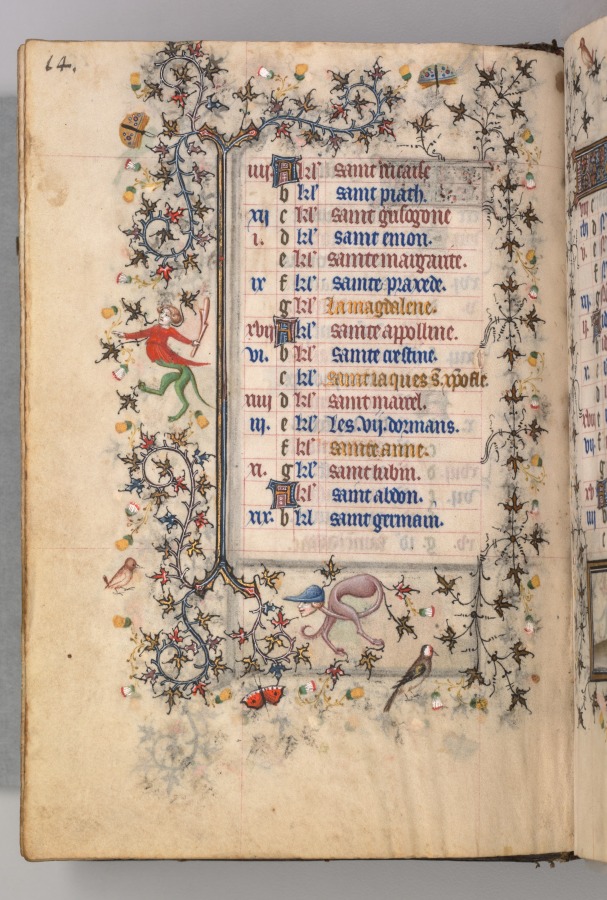 14.
iiij A kl' saint
b kl' saint piath.
xij c kl' saint grisogone
i. d kl' saint emon.
e kl' sainte margarite.
ix f kl' sainte praxede.
g kl' la magdalene.
xvij A kl' sainte appolline.
vi. b kl' sainte cristine.
c kl' saint iaques
xiiij d kl' saint marcel.
iij. e kl' les. vij. dormans.
f kl' sainte anne.
xi. g kl' saint lubin.
A kl' saint abdon.
xix. b kl' saint germain.